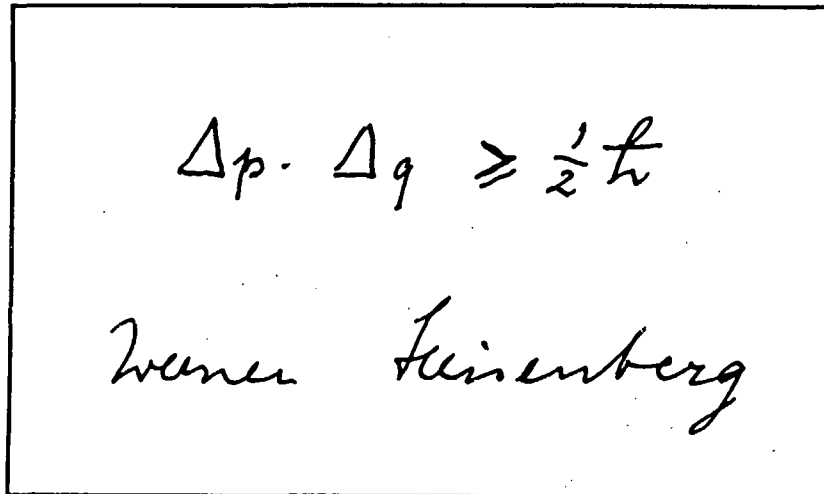 Δp · Δq ≥ ½ ℏ
Werner Heisenberg